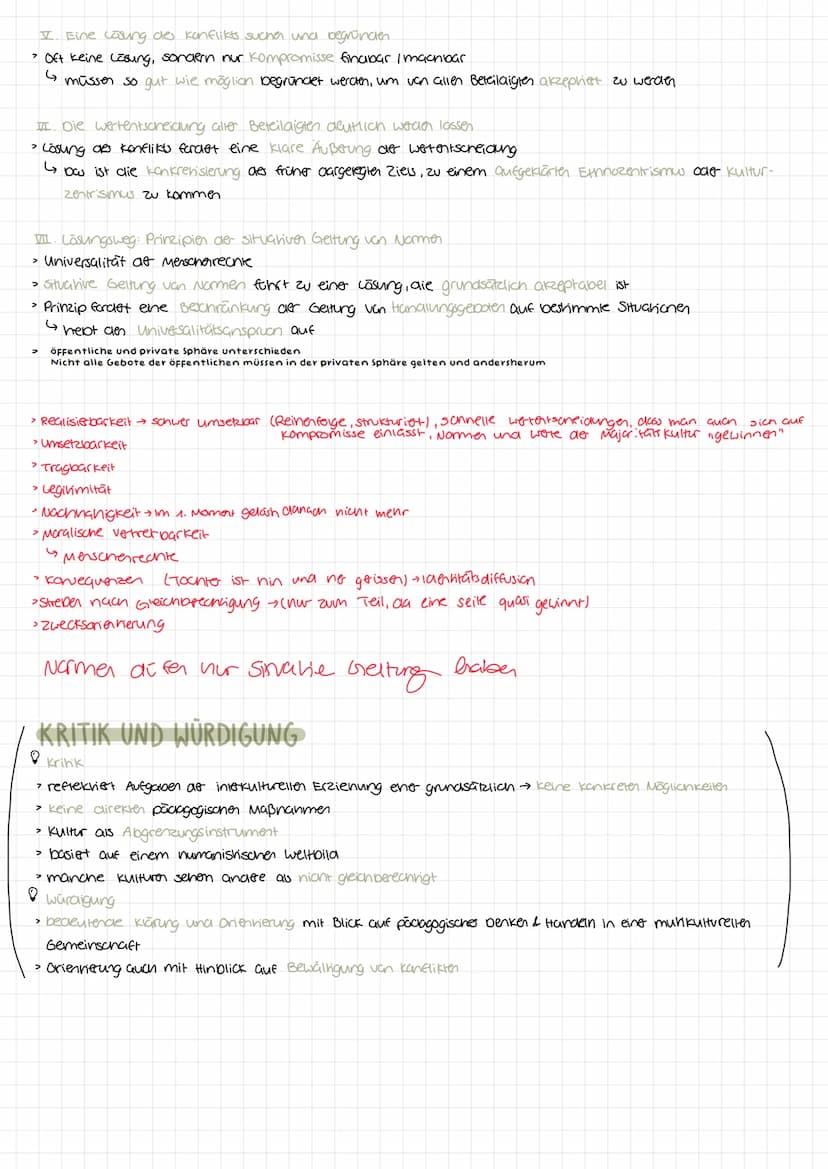 V. Eine Lösung des Konflikts suchen und begründen
> Oft keine Lösung, sondern nur Kompromisse findbar / machbar
↳ müssen so gut wie möglich begründet werden, um von allen Beteilaigten akzeptiert zu werden
VI. Die Wertentscheidung aller Beteilaigten deutlich werden lassen
> Lösung des Konflikts fordert eine klare Äußerung der Wertentscheidung
↳ Das ist die Konkretisierung des früher dargelegten Ziels, zu einem aufgeklärten Ethnozentrismus oder Kultur-
zentrismus zu kommen
VII. Lösungsweg: Prinzipien der situativen Geltung von Normen
> Universalität der Menschenrechte
> Situative Geltung von Normen führt zu einer Lösung, die grundsätzlich akzeptabel ist
> Prinzip fordert eine Beschränkung der Geltung von Handlungsgeboten auf bestimmte Situationen
↳ hebt den Universalitätsanspruch auf
> öffentliche und private Sphäre unterschieden
Nicht alle Gebote der öffentlichen müssen in der privaten Sphäre gelten und andersherum
> Realisierbarkeit → schwer umsetzbar (Reihenfolge, strukturiert), schnelle Wertentscheidungen, dass man auch sich auf
Kompromisse einlässt, Normen und Werte der Majoritätskultur „gewinnen"
> Umsetzbarkeit
> Tragbarkeit
> Legitimität
> Nachhaltigkeit → im 1. Moment gelöst, danach nicht mehr
> Moralische Vertretbarkeit
↳ Menschenrechte
> Konsequenzen (Tochter ist hin und her gerissen) → Identitätsdiffusion
> Streben nach Gleichberechtigung → (nur zum Teil, da eine Seite quasi gewinnt)
> Zwecksorientierung
Normen dürfen nur situative Geltung haben
KRITIK UND WÜRDIGUNG
Kritik
> reflektiert Aufgaben der interkulturellen Erziehung eher grundsätzlich → keine konkreten Möglichkeiten
> keine direkten pädagogischen Maßnahmen
> Kultur als Abgrenzungsinstrument
> basiert auf einem humanistischen Weltbild
> manche Kulturen sehen andere als nicht gleichberechtigt
Würdigung
> bedeutende Klärung und Orientierung mit Blick auf pädagogisches Denken & Handeln in einer multikulturellen
Gemeinschaft
> Orientierung auch mit Hinblick auf Bewältigung von Konflikten